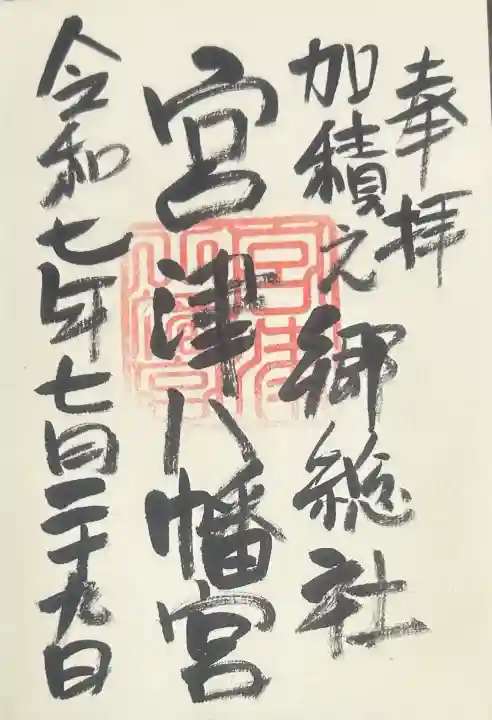 奉拝
加積之郷総社
宮津八幡宮
令和七年七月二十九日